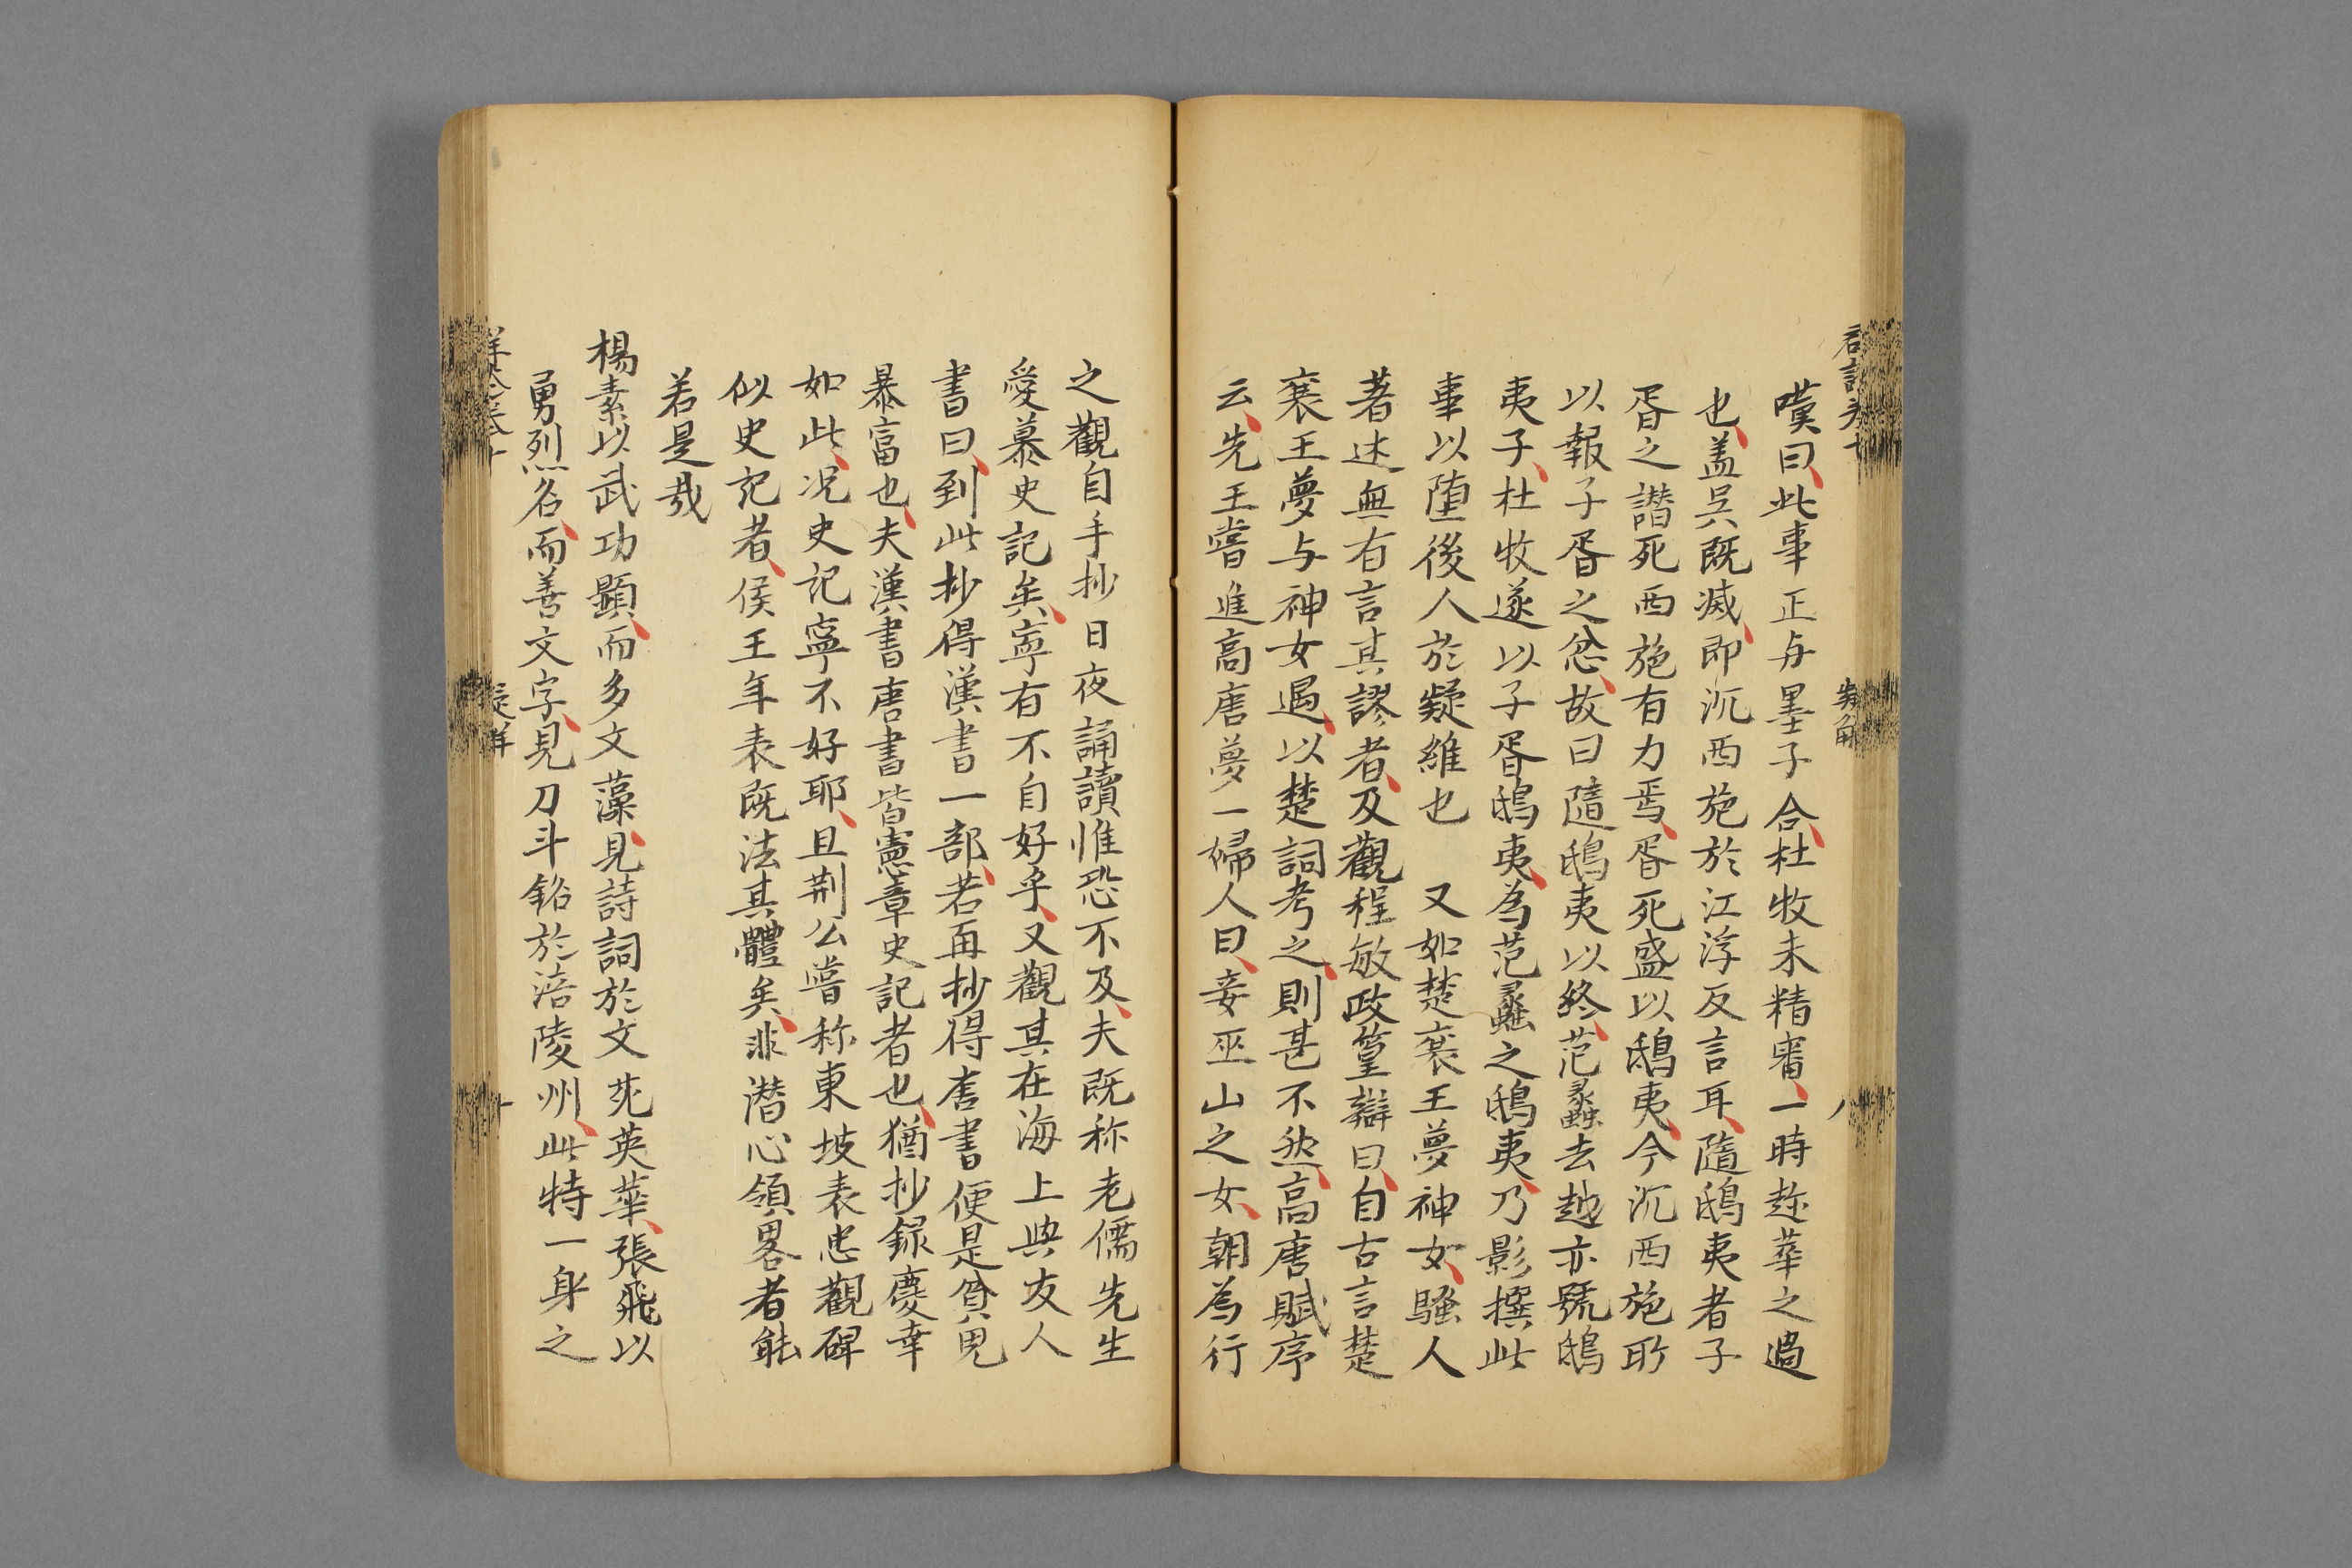 嘆曰此事正与墨子合杜牧未精審一時趂華之過
也盖吴既滅即沉西施於江浮反言耳隨鴟夷者子
胥之譖死西施有力焉胥死盛以鴟夷今沉西施所
以報子胥之忿故曰隨鴟夷以終范蠡去越亦號鴟
夷子杜牧遂以子胥鴟夷為范蠡之鴟夷乃影撰此
事以墮後人於疑維也 又如楚襄王夢神女騷人
著述無有言其謬者及觀程敏政篁墩辯曰自古言楚
襄王夢与神女遇以楚詞考之則甚不然高唐賦序
云先王嘗進高唐夢一婦人曰妾巫山之女朝為行
之觀自手抄日夜誦讀惟恐不及夫既称老儒先生
愛慕史記矣寧有不自好乎又觀其在海上與友人
書曰到此抄得漢書一部若再抄得唐書便是貧兒
暴富也夫漢書唐書皆憲章史記者也猶抄錄慶幸
如此况史記寧不好耶且荆公嘗称東坡表忠觀碑
似史記者侯王年表既法其體矣非潜心領畧者能
若是哉
楊素以武功顯而多文藻見詩詞於文苑英華張飛以
勇烈名而善文字見刀斗銘於涪陵州此特一身之